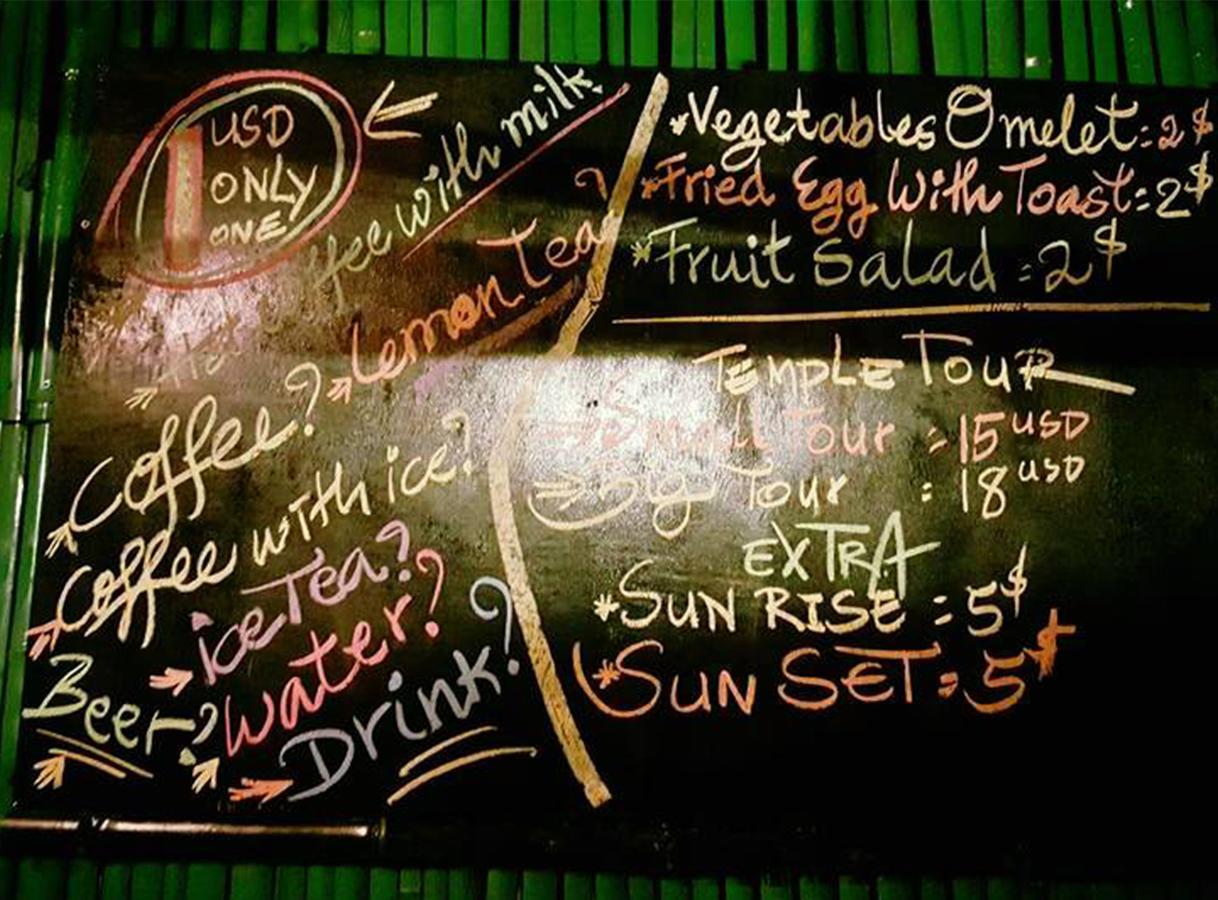 1 USD
ONLY
ONE
Hot Coffee with milk
Lemon Tea?
Coffee?
Coffee with ice?
ice Tea?
Water?
Beer?
Drink?
*Vegetables Omelet: 2$
*Fried Egg With Toast: 2$
*Fruit Salad = 2$
TEMPLE TOUR
Small Tour : 15 USD
Big Tour : 18 USD
EXTRA
*SUN RISE : 5$
*SUN SET : 5$